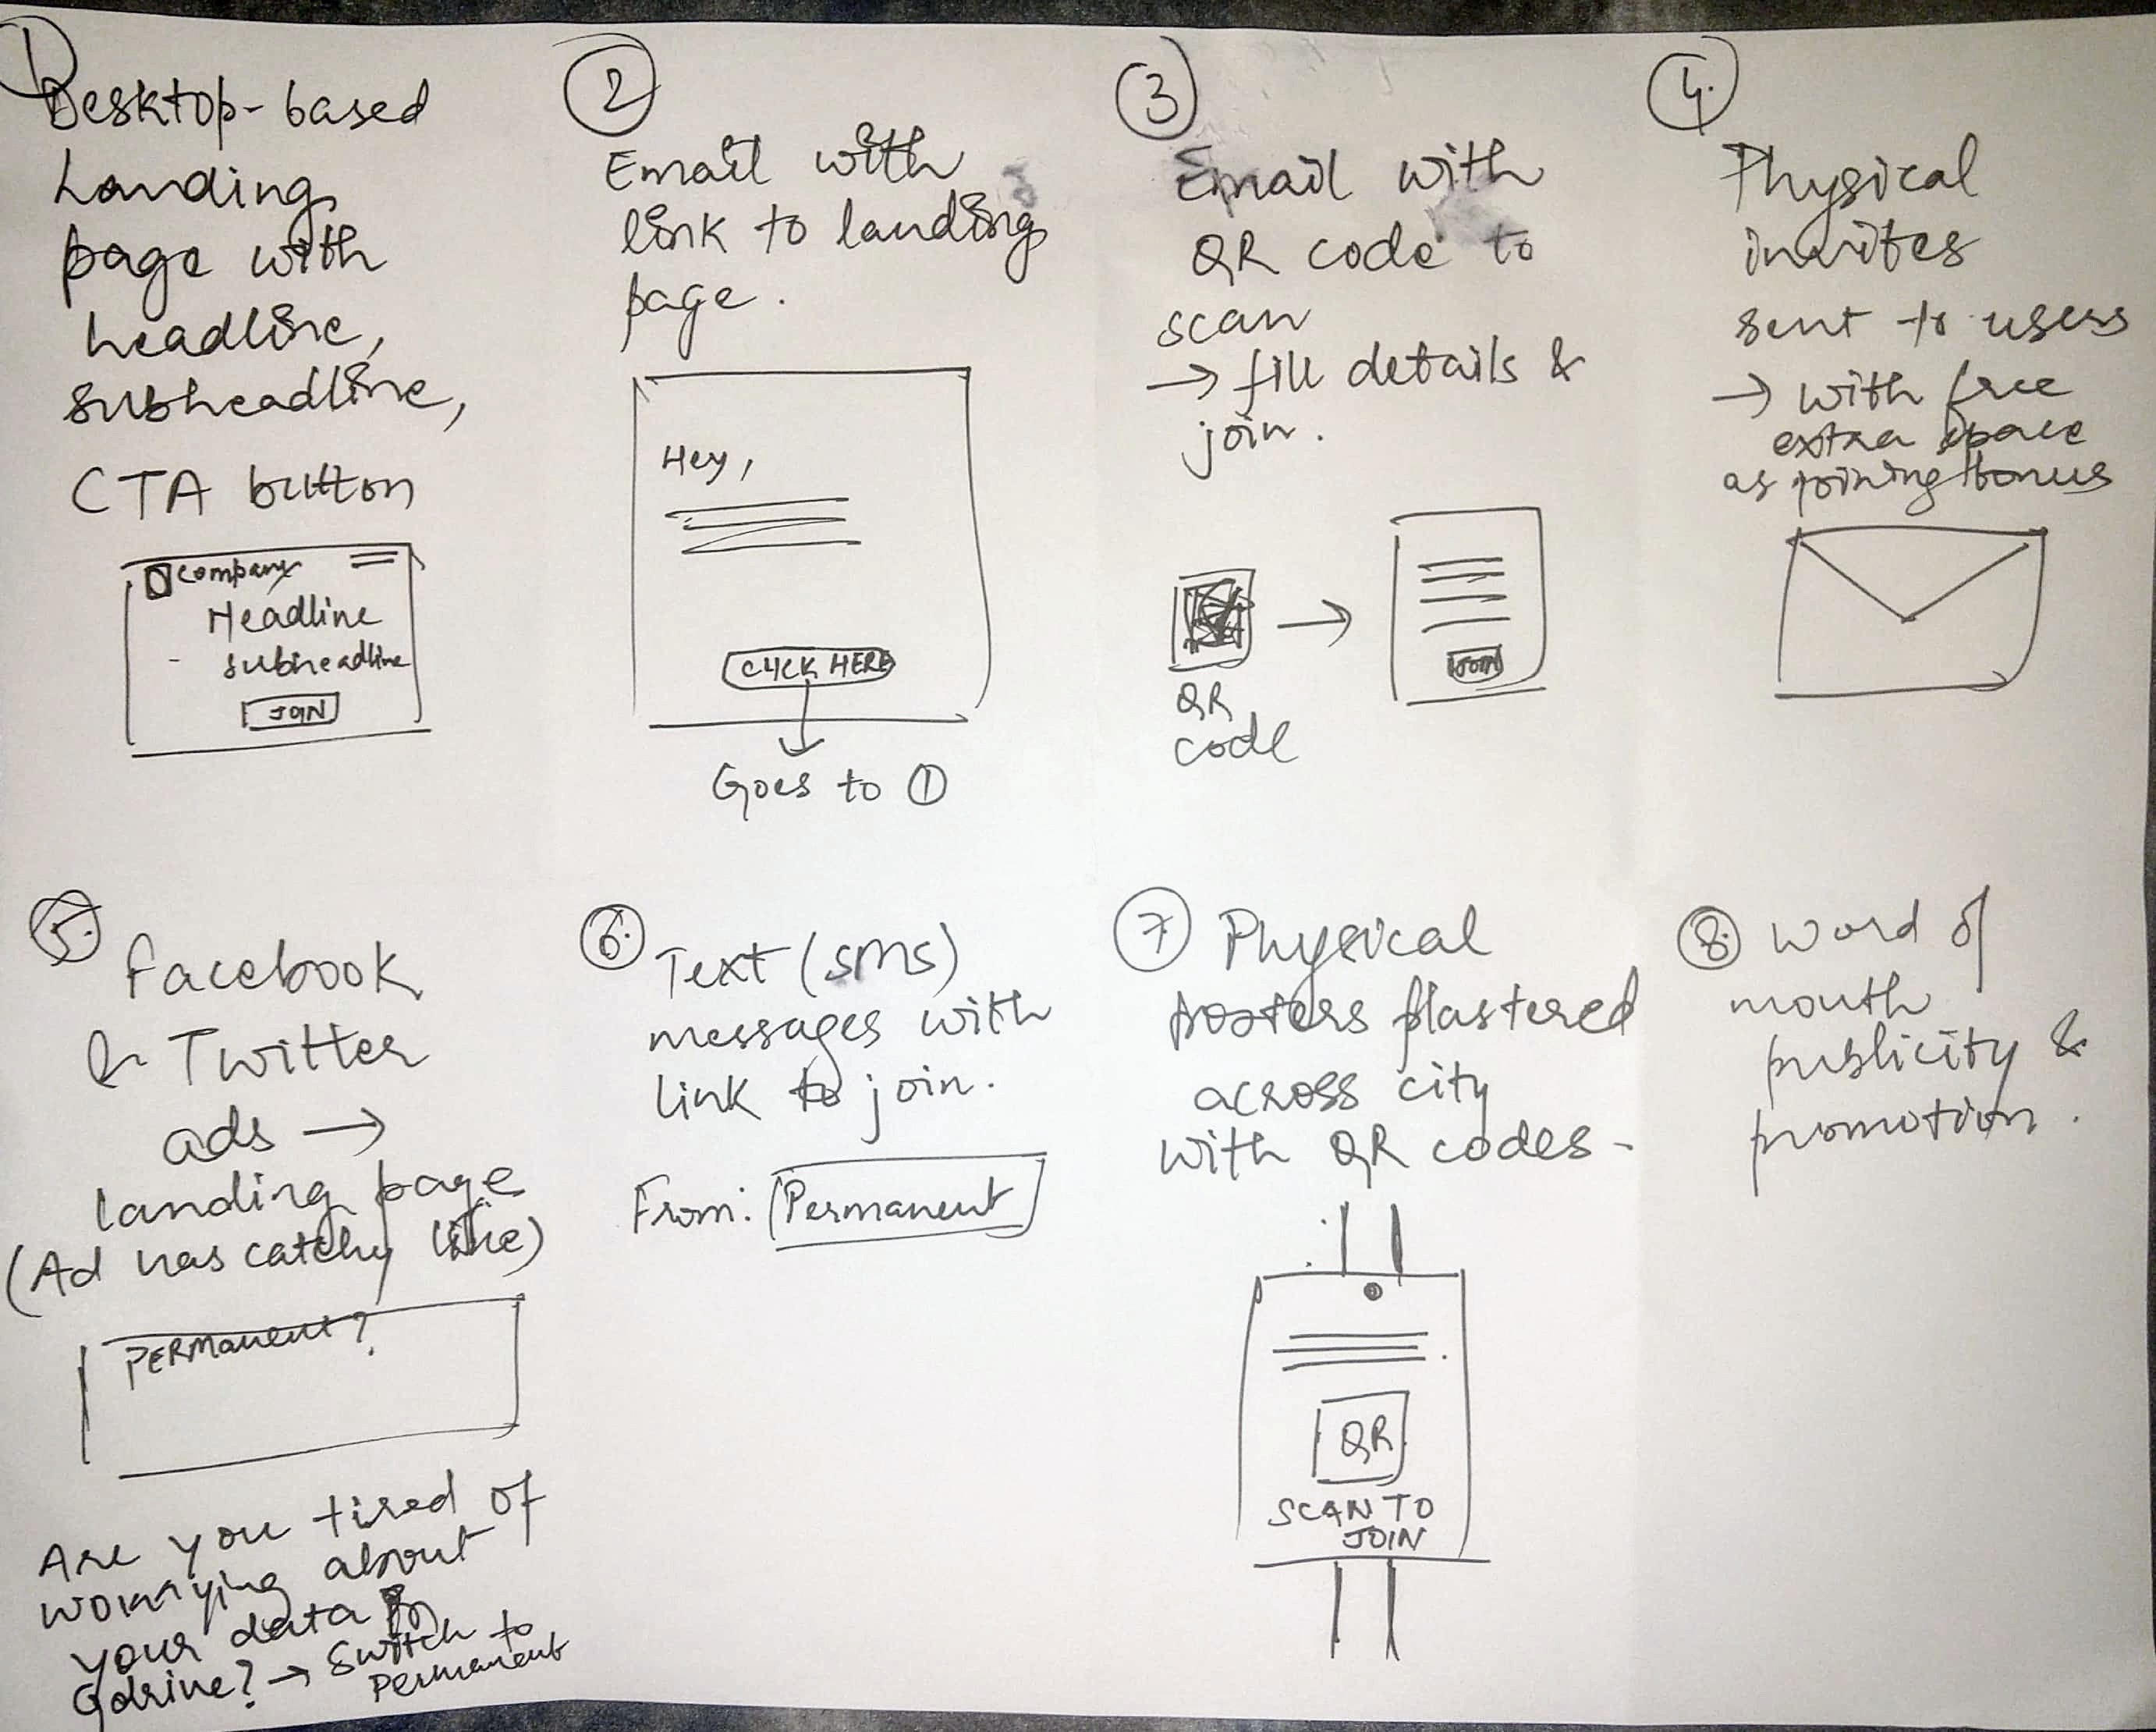 1
Desktop-based
Landing
page with
headline,
subheadline,
CTA button
Company
Headline
subheadline
JOIN
2
Email with
link to landing
page.
Hey,
CLICK HERE
Goes to 1
3
Email with
QR code to
scan
→ fill details &
join.
QR
code
JOIN
4.
Physical
invites
sent to users
→ with free
extra space
as joining bonus
5.
Facebook
& Twitter
ads →
landing page
(Ad has catchy line)
PERMANENT?
Are you tired of
worrying about
your data
Gdrive? → Switch to
Permanent
6.
Text (SMS)
messages with
link to join.
From: Permanent
7.
Physical
posters plastered
across city
with QR codes-
QR
SCAN TO
JOIN
8. Word of
mouth
publicity &
promotion.